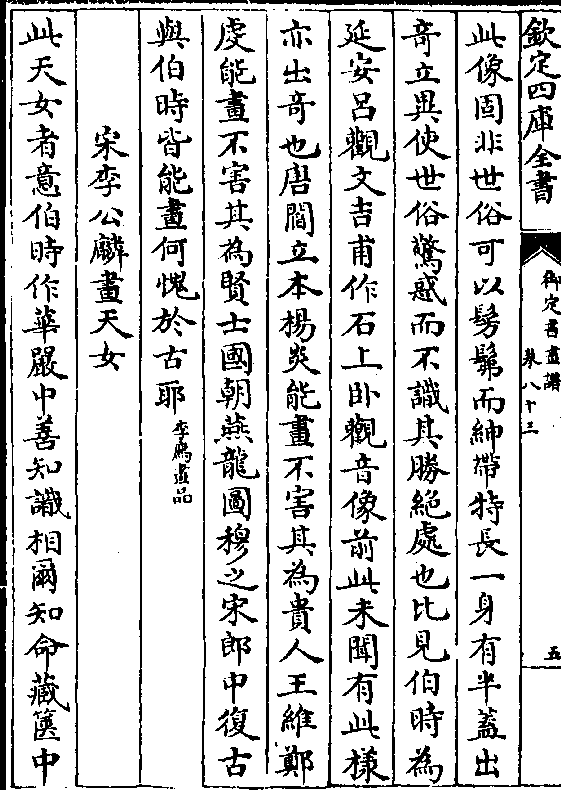 欽定四庫全書
御定書畫譜
卷八十三
五
此像固非世俗可以髣髴而紳帶特長一身有半蓋出
奇立異使世俗驚惑而不識其勝絶處也比見伯時為
延安呂觀文吉甫作石上卧觀音像前此未聞有此様
亦出奇也唐閻立本楊炎能畫不害其為貴人王維鄭
虔能畫不害其為賢士國朝燕龍圖穆之宋郎中復古
與伯時皆能畫何愧於古耶李廌畫品
宋李公麟畫天女
此天女者意伯時作華嚴中善知識相爾知命藏篋中